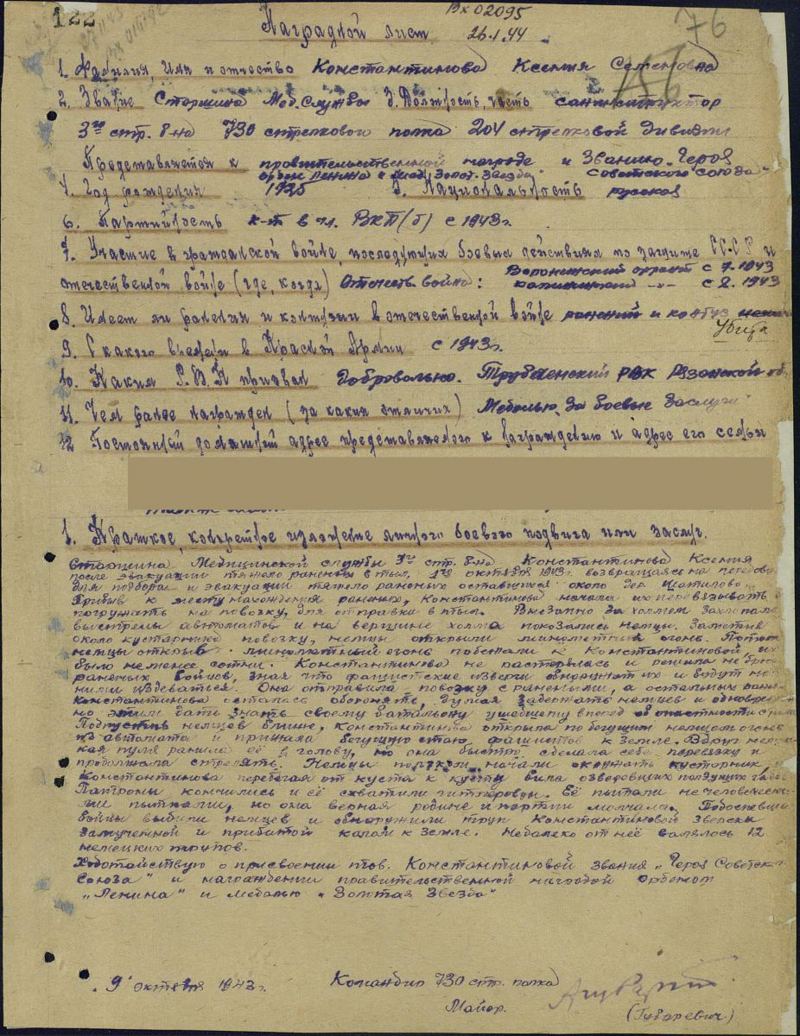 122
Вх 02095
76
Наградной лист.
26.1.44
1. Фамилия, Имя и отчество Константинова Ксения Семеновна
2. Звание Старшина Мед. Службы 3. Должность, часть санинструктор
3го стр. б-на 730 стрелкового полка 204 стрелковой дивизии
Представляется к правительственной награде и Званию "Героя
орден Ленина и мед. Золот. Звезда Советского Союза"
4. Год рождения 1925 5. Национальность русская
6. Партийность к-т в чл. ВКП(б) с 1943г.
7. Участие в гражданской войне, последующих боевых действиях по защите СССР и
отечественной войне (где, когда) Отечеств. война: Воронежский фронт с 7.1943
калининский -"- с 8.1943
8. Имеет ли ранения и контузии в отечественной войне ранений и контуз
Убита
9. С какого времени в Красной Армии с 1943г.
10. Каким Р.В.К призван добровольно. РВК Рязанской об
11. Чем ранее награжден (за какие отличия) Медалью "За боевые Заслуги"
12 Постоянный домашний адрес представляемого к награждению и адрес его семьи
1. Краткое, конкретное изложение личного боевого подвига или заслуг.
Старшина Медицинской службы 3го стр. б-на Константинова Ксения
после эвакуации тяжело раненых в тыл, октября 1943г. возвращалась на передов
для подбора и эвакуации тяжело раненых оставшихся около дл Шатилово.
Прибыв к месту нахождения раненых, Константинова начала их перевязывать и
погружать на повозку, для отправки в тыл. Внезапно за холмом захлопали
выстрелы автоматов и на вершине холма показались немцы. Заметив
около кустарника повозку, немцы открыли минометный огонь. Потом
немцы открыв минометный огонь побежали к Константиновой их
было не менее сотни. Константинова не растерялась и решила не бро
раненых бойцов, зная что фашистские изверги обнаружат их и будут над
ними издеваться. Она отправила повозку с ранеными, а остальных ране
Константинова осталась оборонять, думая задержать немцев и одновреме
но этим дать знать своему батальону ушедшему вперед об опасности с тыла
Подпустив немцев ближе, Константинова открыла по бегущим немцам огонь
из автомата и прижала бегущую стаю фашистов к земле. Вдруг немец
кая пуля ранила её в голову, но она быстро сделала себе перевязку и
продолжала стрелять. Немцы ползком начали окружать кустарник, и
Константинова перебегая от куста к кусту била озверевших ползущих гадов
Патроны кончились и её схватили гитлеровцы. Её пытали нечеловечески
ми пытками, но она верная родине и партии молчала. Подоспевшие
бойцы выбили немцев и обнаружили труп Константиновой зверски
замученной и прибитой колом к земле. Недалеко от неё валялось 12
немецких трупов.
Ходатайствую о присвоении тов. Константиновой звания "Героя Советск
Союза" и награждении правительственной наградой Орденом
"Ленина" и медалью "Золотая Звезда"
9 октября 1943г. Командир 730 стр. полка
Майор.
(Губаревич)